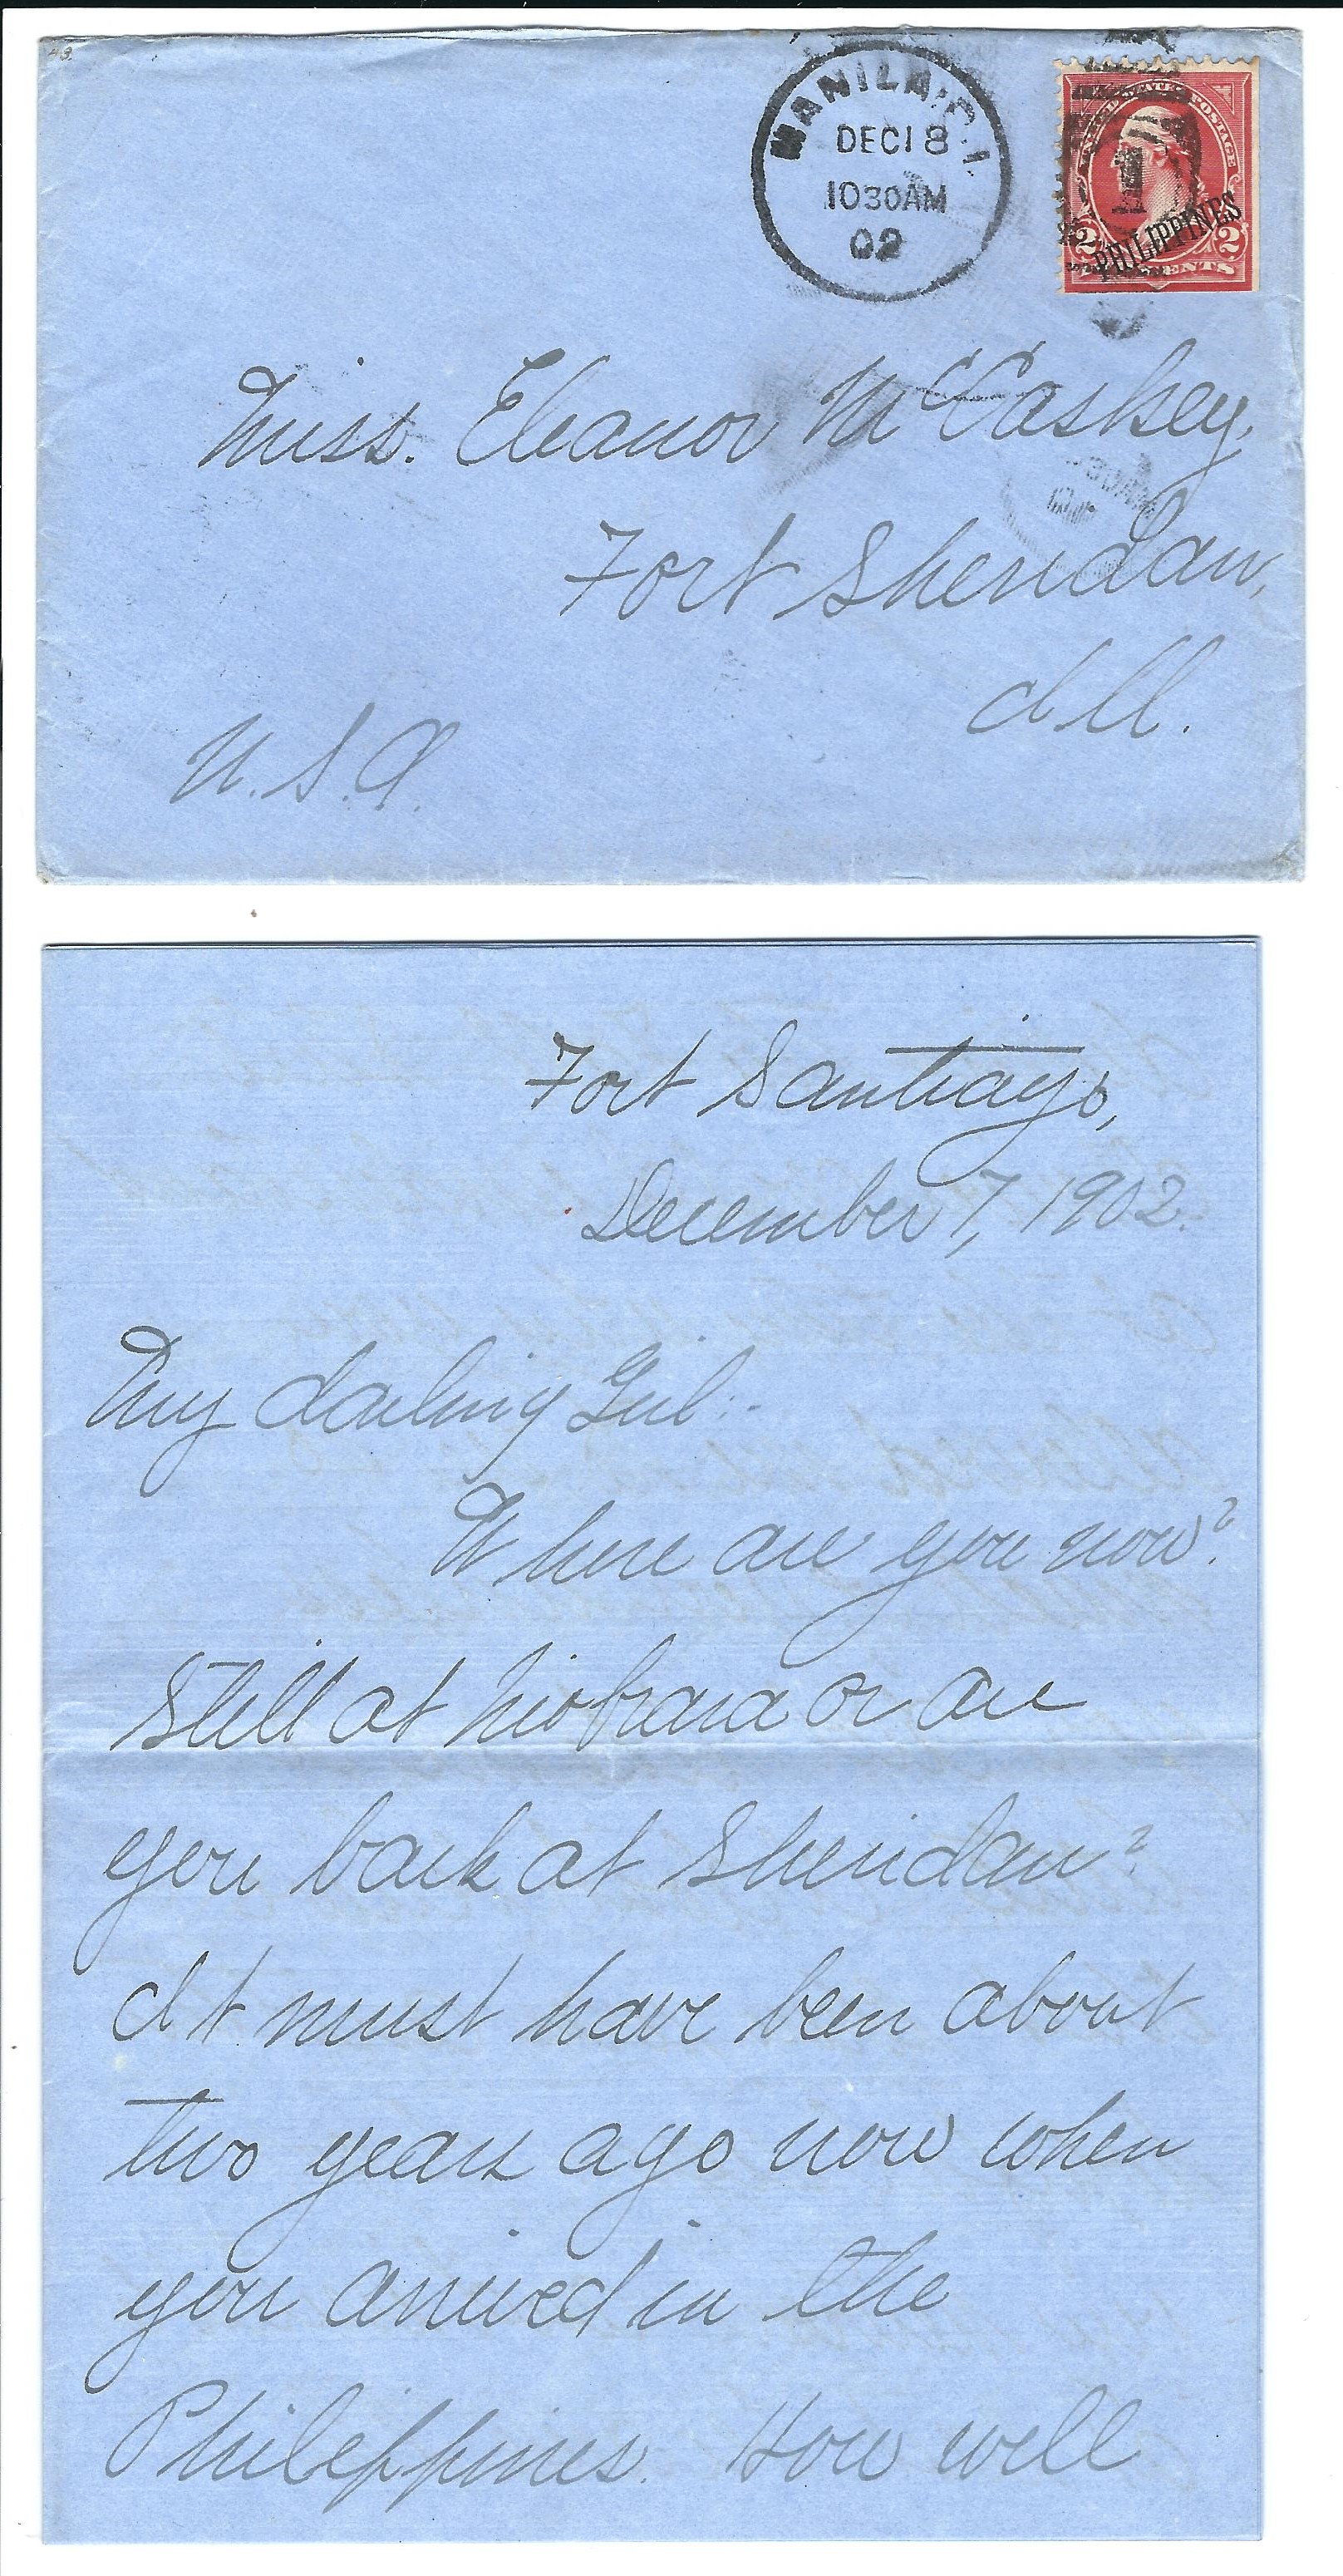 MANILA, P.I.
DEC 18
10 30 AM
02
UNITED STATES POSTAGE
1
PHILIPPINES
2 CENTS 2
Miss. Eleanor McCaskey,
Fort Sheridan,
Ill.
U.S.A.
Fort Santiago,
December 7, 1902.
My darling Girl:-
Where are you now?
Still at Niobrara or are
you back at Sheridan?
It must have been about
two years ago now when
you arrived in the
Philippines. How well